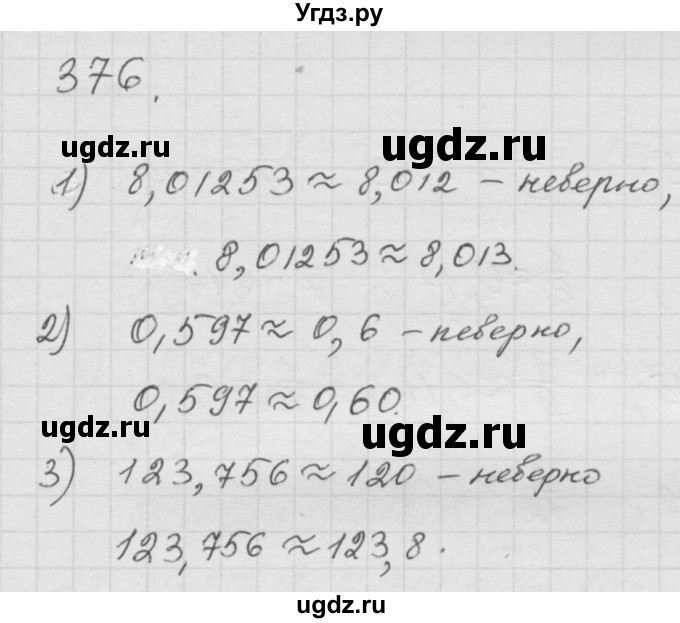 Угдз.ру
376.
ugdz.ru
ugdz.ru
1) 8,01253 ≈ 8,012 – неверно,
8,01253 ≈ 8,013.
2) 0,597 ≈ 0,6 – неверно,
0,597 ≈ 0,60.
ugdz.ru
ugdz.ru
3) 123,756 ≈ 120 – неверно
123,756 ≈ 123,8.
ugdz.ru